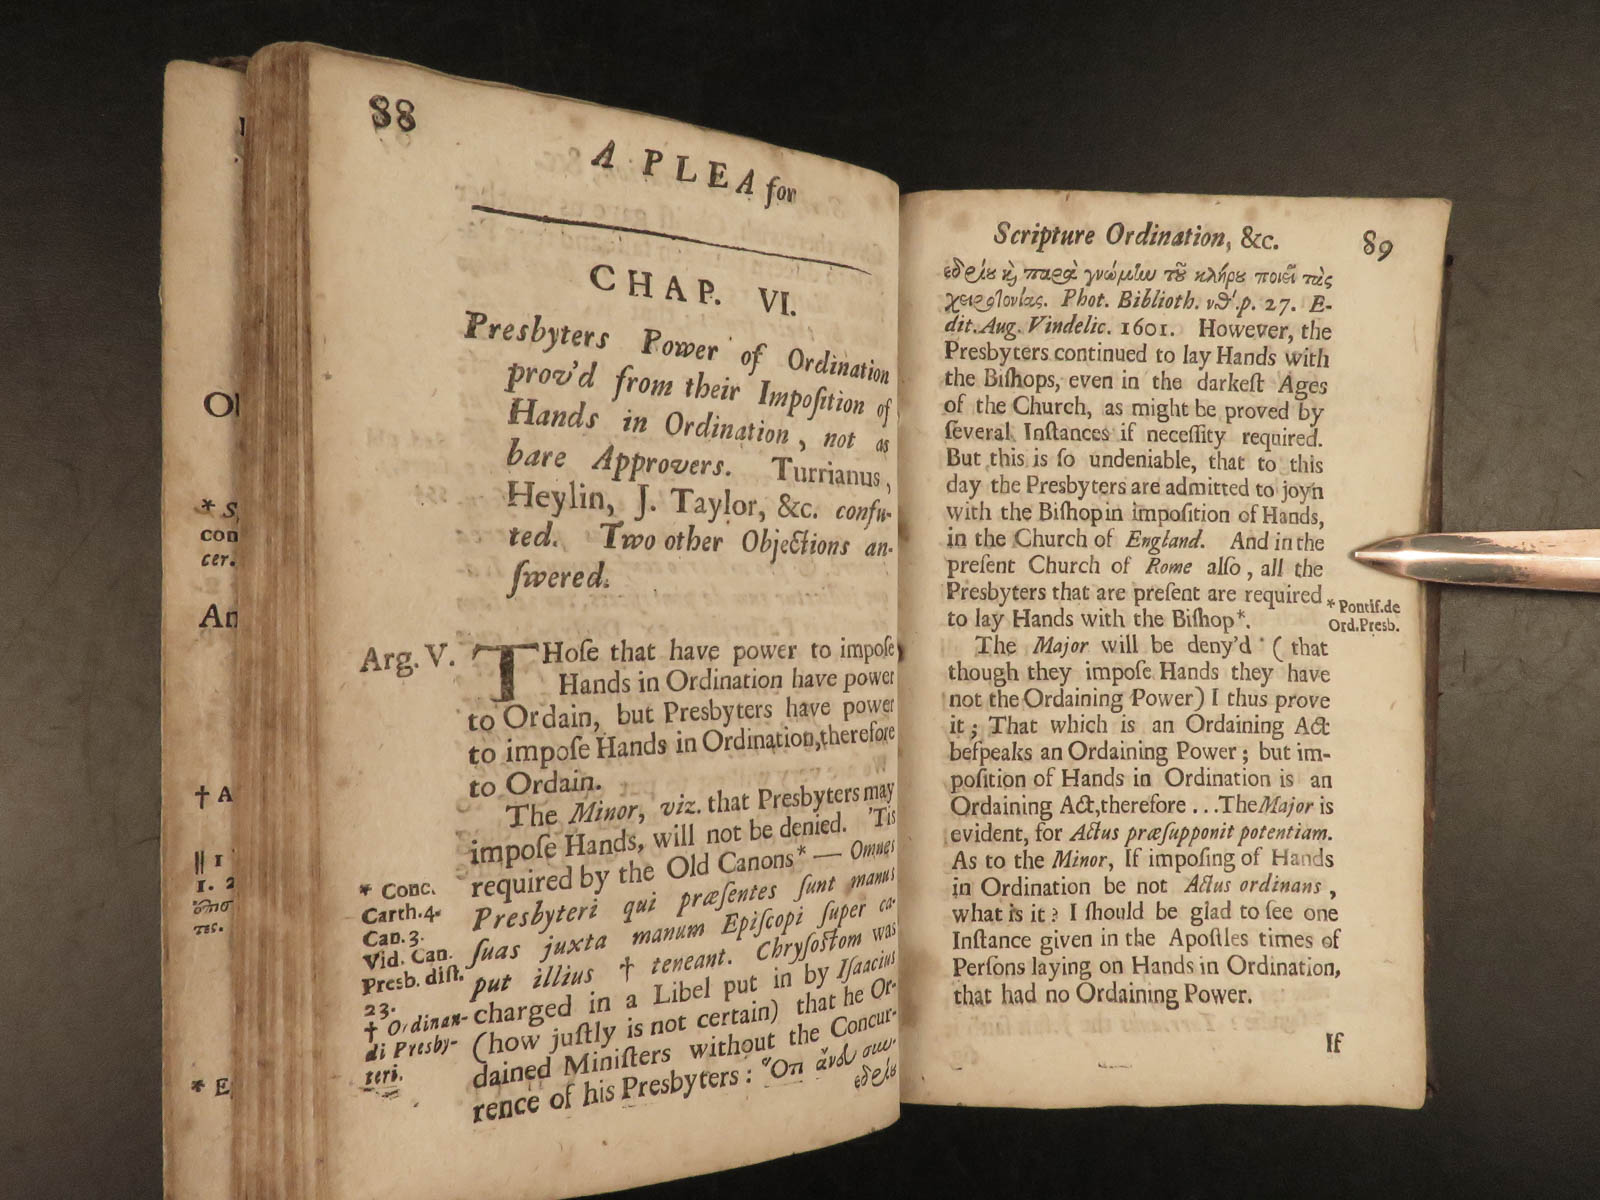 88
A PLEA for
CHAP. VI.
Presbyters Power of Ordination
prov'd from their Impoſition of
Hands in Ordination, not as
bare Approvers. Turrianus,
Heylin, J. Taylor, &c. confu-
ted. Two other Objections an-
ſwered.
Arg. V.
THoſe that have power to impoſe
Hands in Ordination have power
to Ordain, but Presbyters have power
to impoſe Hands in Ordination, therefore
to Ordain.
The Minor, viz. that Presbyters may
impoſe Hands, will not be denied. 'Tis
required by the Old Canons* — Omnes
Presbyteri qui præſentes ſunt manus
ſuas juxta manum Epiſcopi ſuper ca-
put illius † teneant. Chryſoſtom was
charged in a Libel put in by Iſaacius
(how juſtly is not certain) that he Or-
dained Miniſters without the Concur-
rence of his Presbyters: Ὅτι ἄνευ συν-
εδρίου
* Conc.
Carth. 4.
Can. 3.
Vid. Can.
Presb. diſt.
23.
† Ordinan-
di Presby-
teri.
Scripture Ordination, &c. 89
εδρίου καὶ παρὰ γνώμην τοῦ κλήρου ποιεῖ τὰς
χειροτονίας. Phot. Biblioth. νθ'. p. 27. E-
dit. Aug. Vindelic. 1601. However, the
Presbyters continued to lay Hands with
the Biſhops, even in the darkeſt Ages
of the Church, as might be proved by
ſeveral Inſtances if neceſſity required.
But this is ſo undeniable, that to this
day the Presbyters are admitted to joyn
with the Biſhop in impoſition of Hands,
in the Church of England. And in the
preſent Church of Rome alſo, all the
Presbyters that are preſent are required
to lay Hands with the Biſhop*.
* Pontif. de
Ord. Presb.
The Major will be deny'd (that
though they impoſe Hands they have
not the Ordaining Power) I thus prove
it; That which is an Ordaining Act
beſpeaks an Ordaining Power; but im-
poſition of Hands in Ordination is an
Ordaining Act, therefore ... The Major is
evident, for Actus præſupponit potentiam.
As to the Minor, If impoſing of Hands
in Ordination be not Actus ordinans,
what is it? I ſhould be glad to ſee one
Inſtance given in the Apoſtles times of
Perſons laying on Hands in Ordination,
that had no Ordaining Power.
If